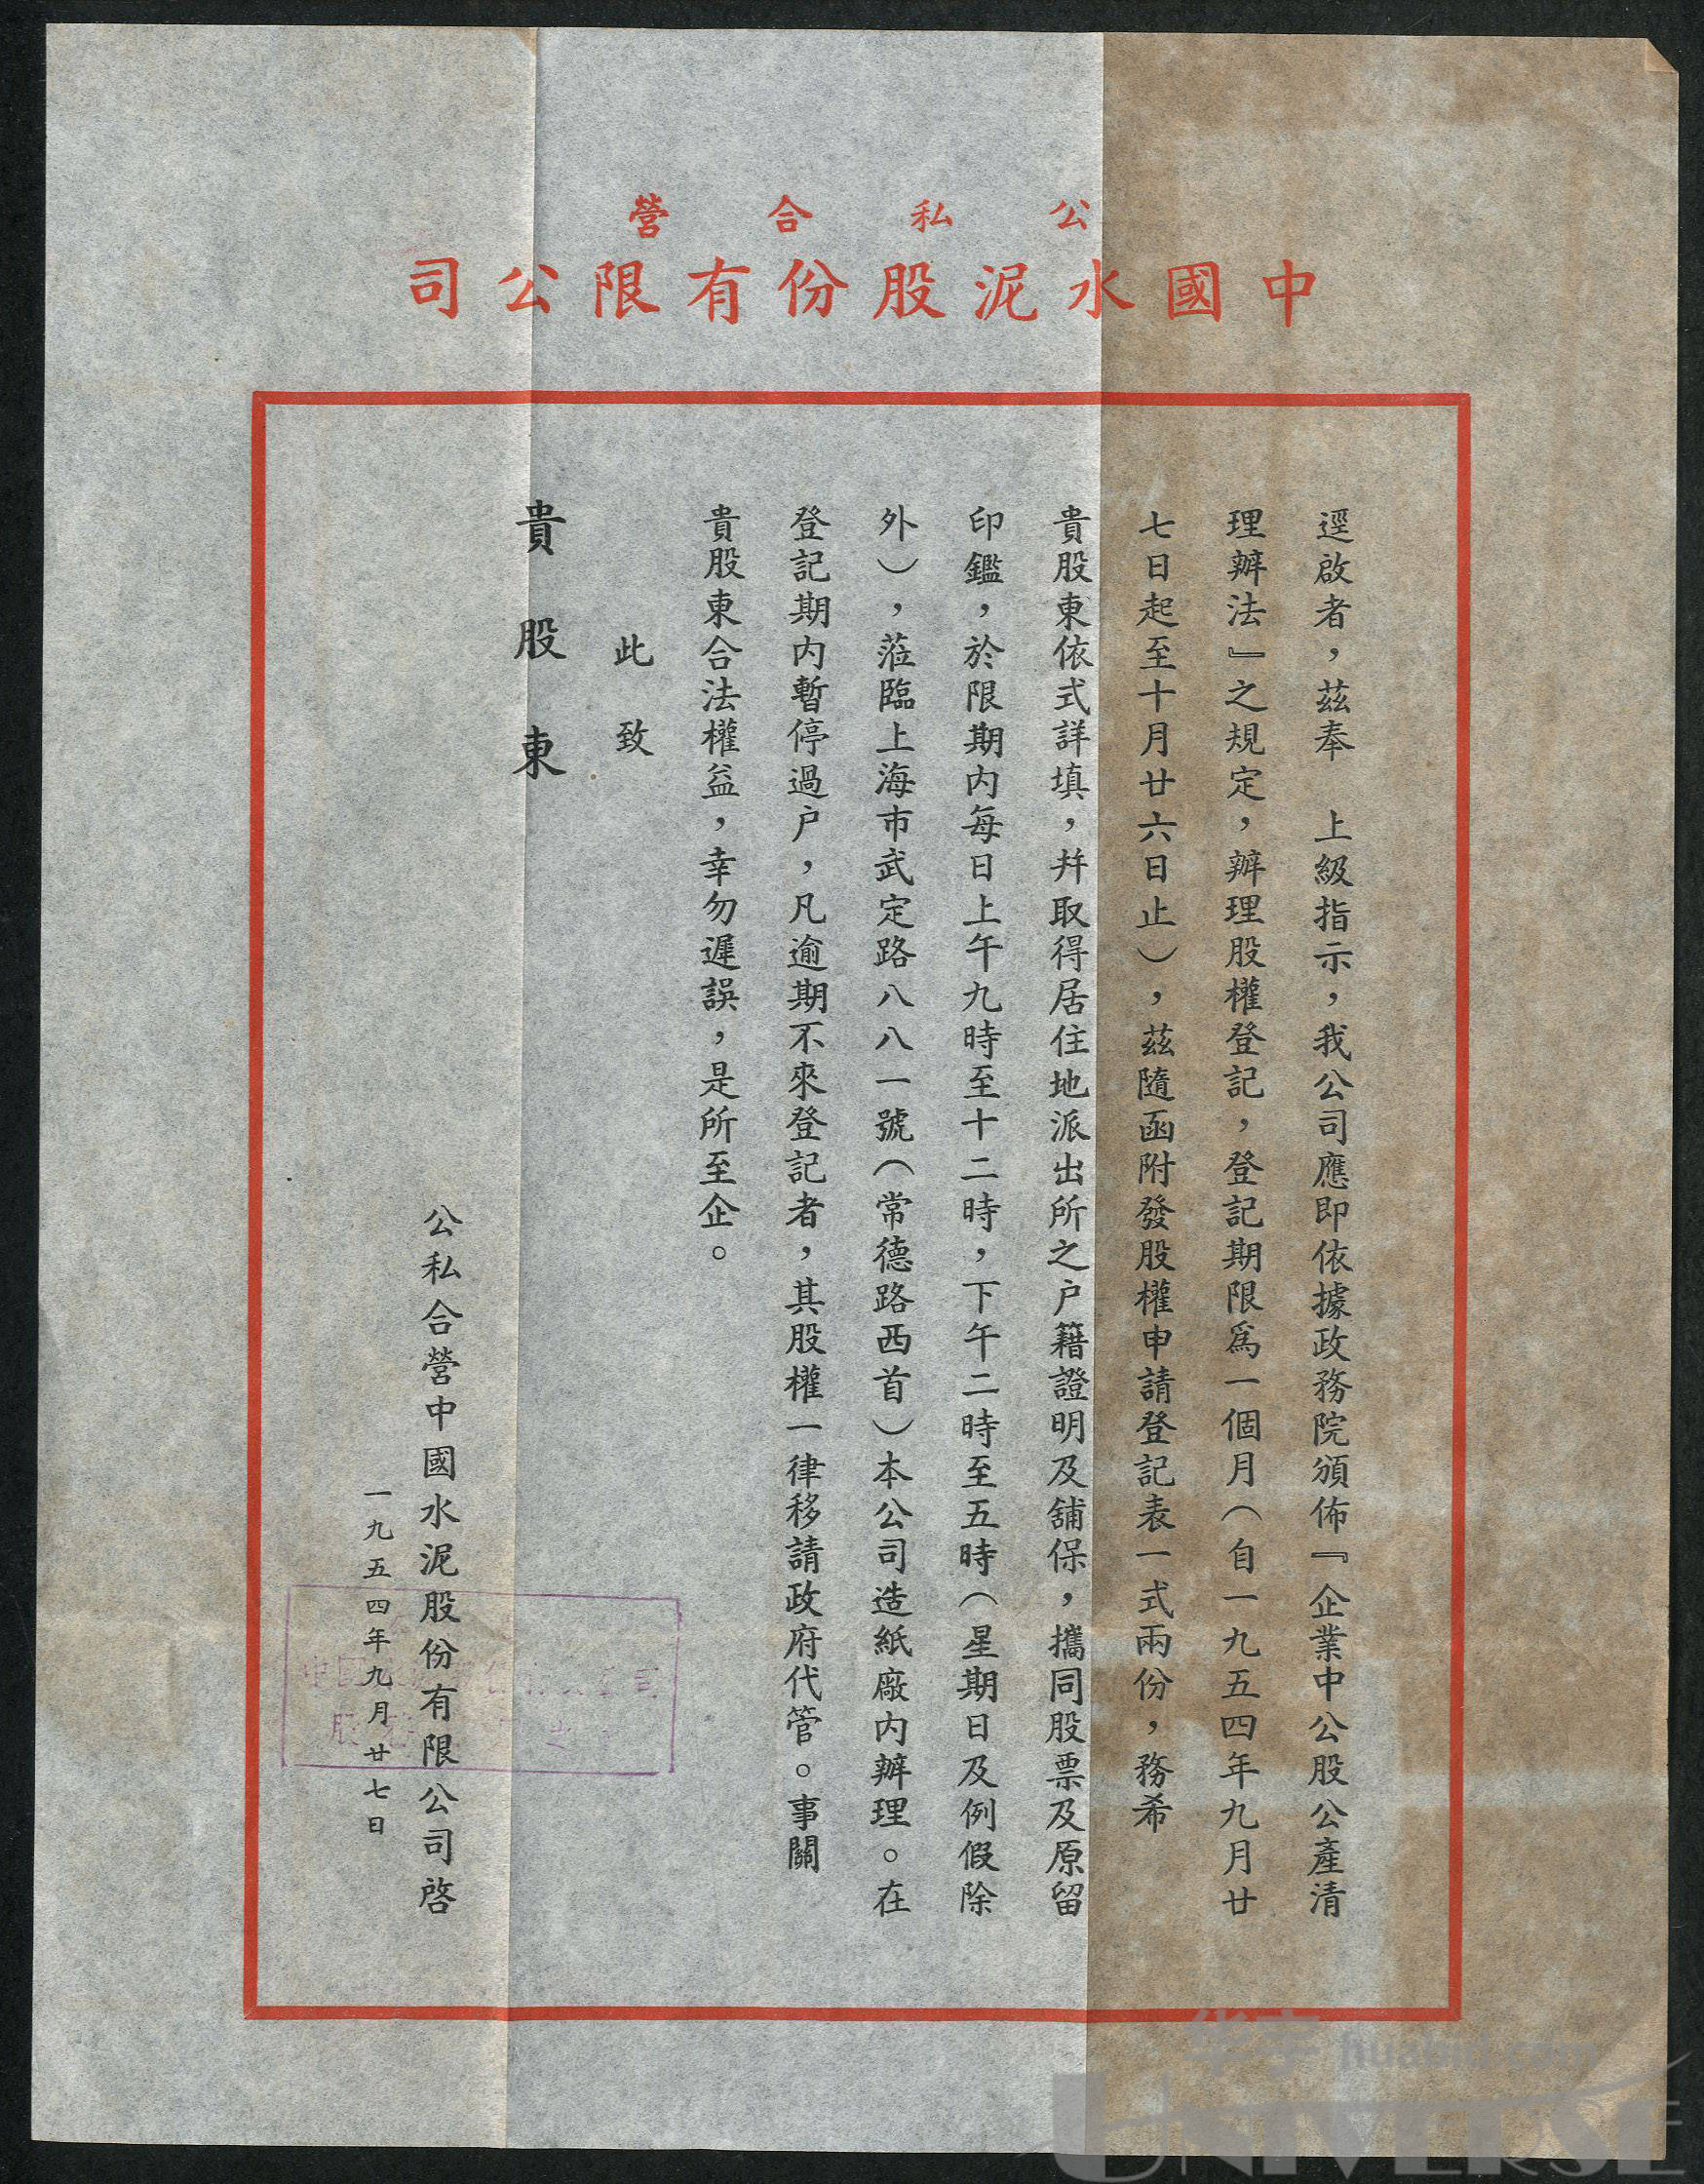 公私合營
中國水泥股份有限公司
逕啟者，茲奉　上級指示，我公司應即依據政務院頒佈『企業中公股公產清
理辦法』之規定，辦理股權登記，登記期限爲一個月（自一九五四年九月廿
七日起至十月廿六日止），茲隨函附發股權申請登記表一式兩份，務希
貴股東依式詳填，幷取得居住地派出所之户籍證明及舖保，攜同股票及原留
印鑑，於限期内每日上午九時至十二時，下午二時至五時（星期日及例假除
外），蒞臨上海市武定路八八一號（常德路西首）本公司造紙廠内辦理。在
登記期内暫停過户，凡逾期不來登記者，其股權一律移請政府代管。事關
貴股東合法權益，幸勿遲誤，是所至企。
此致
貴股東
公私合營中國水泥股份有限公司啓
一九五四年九月廿七日
华宇 huabid.com
UNIVERSE